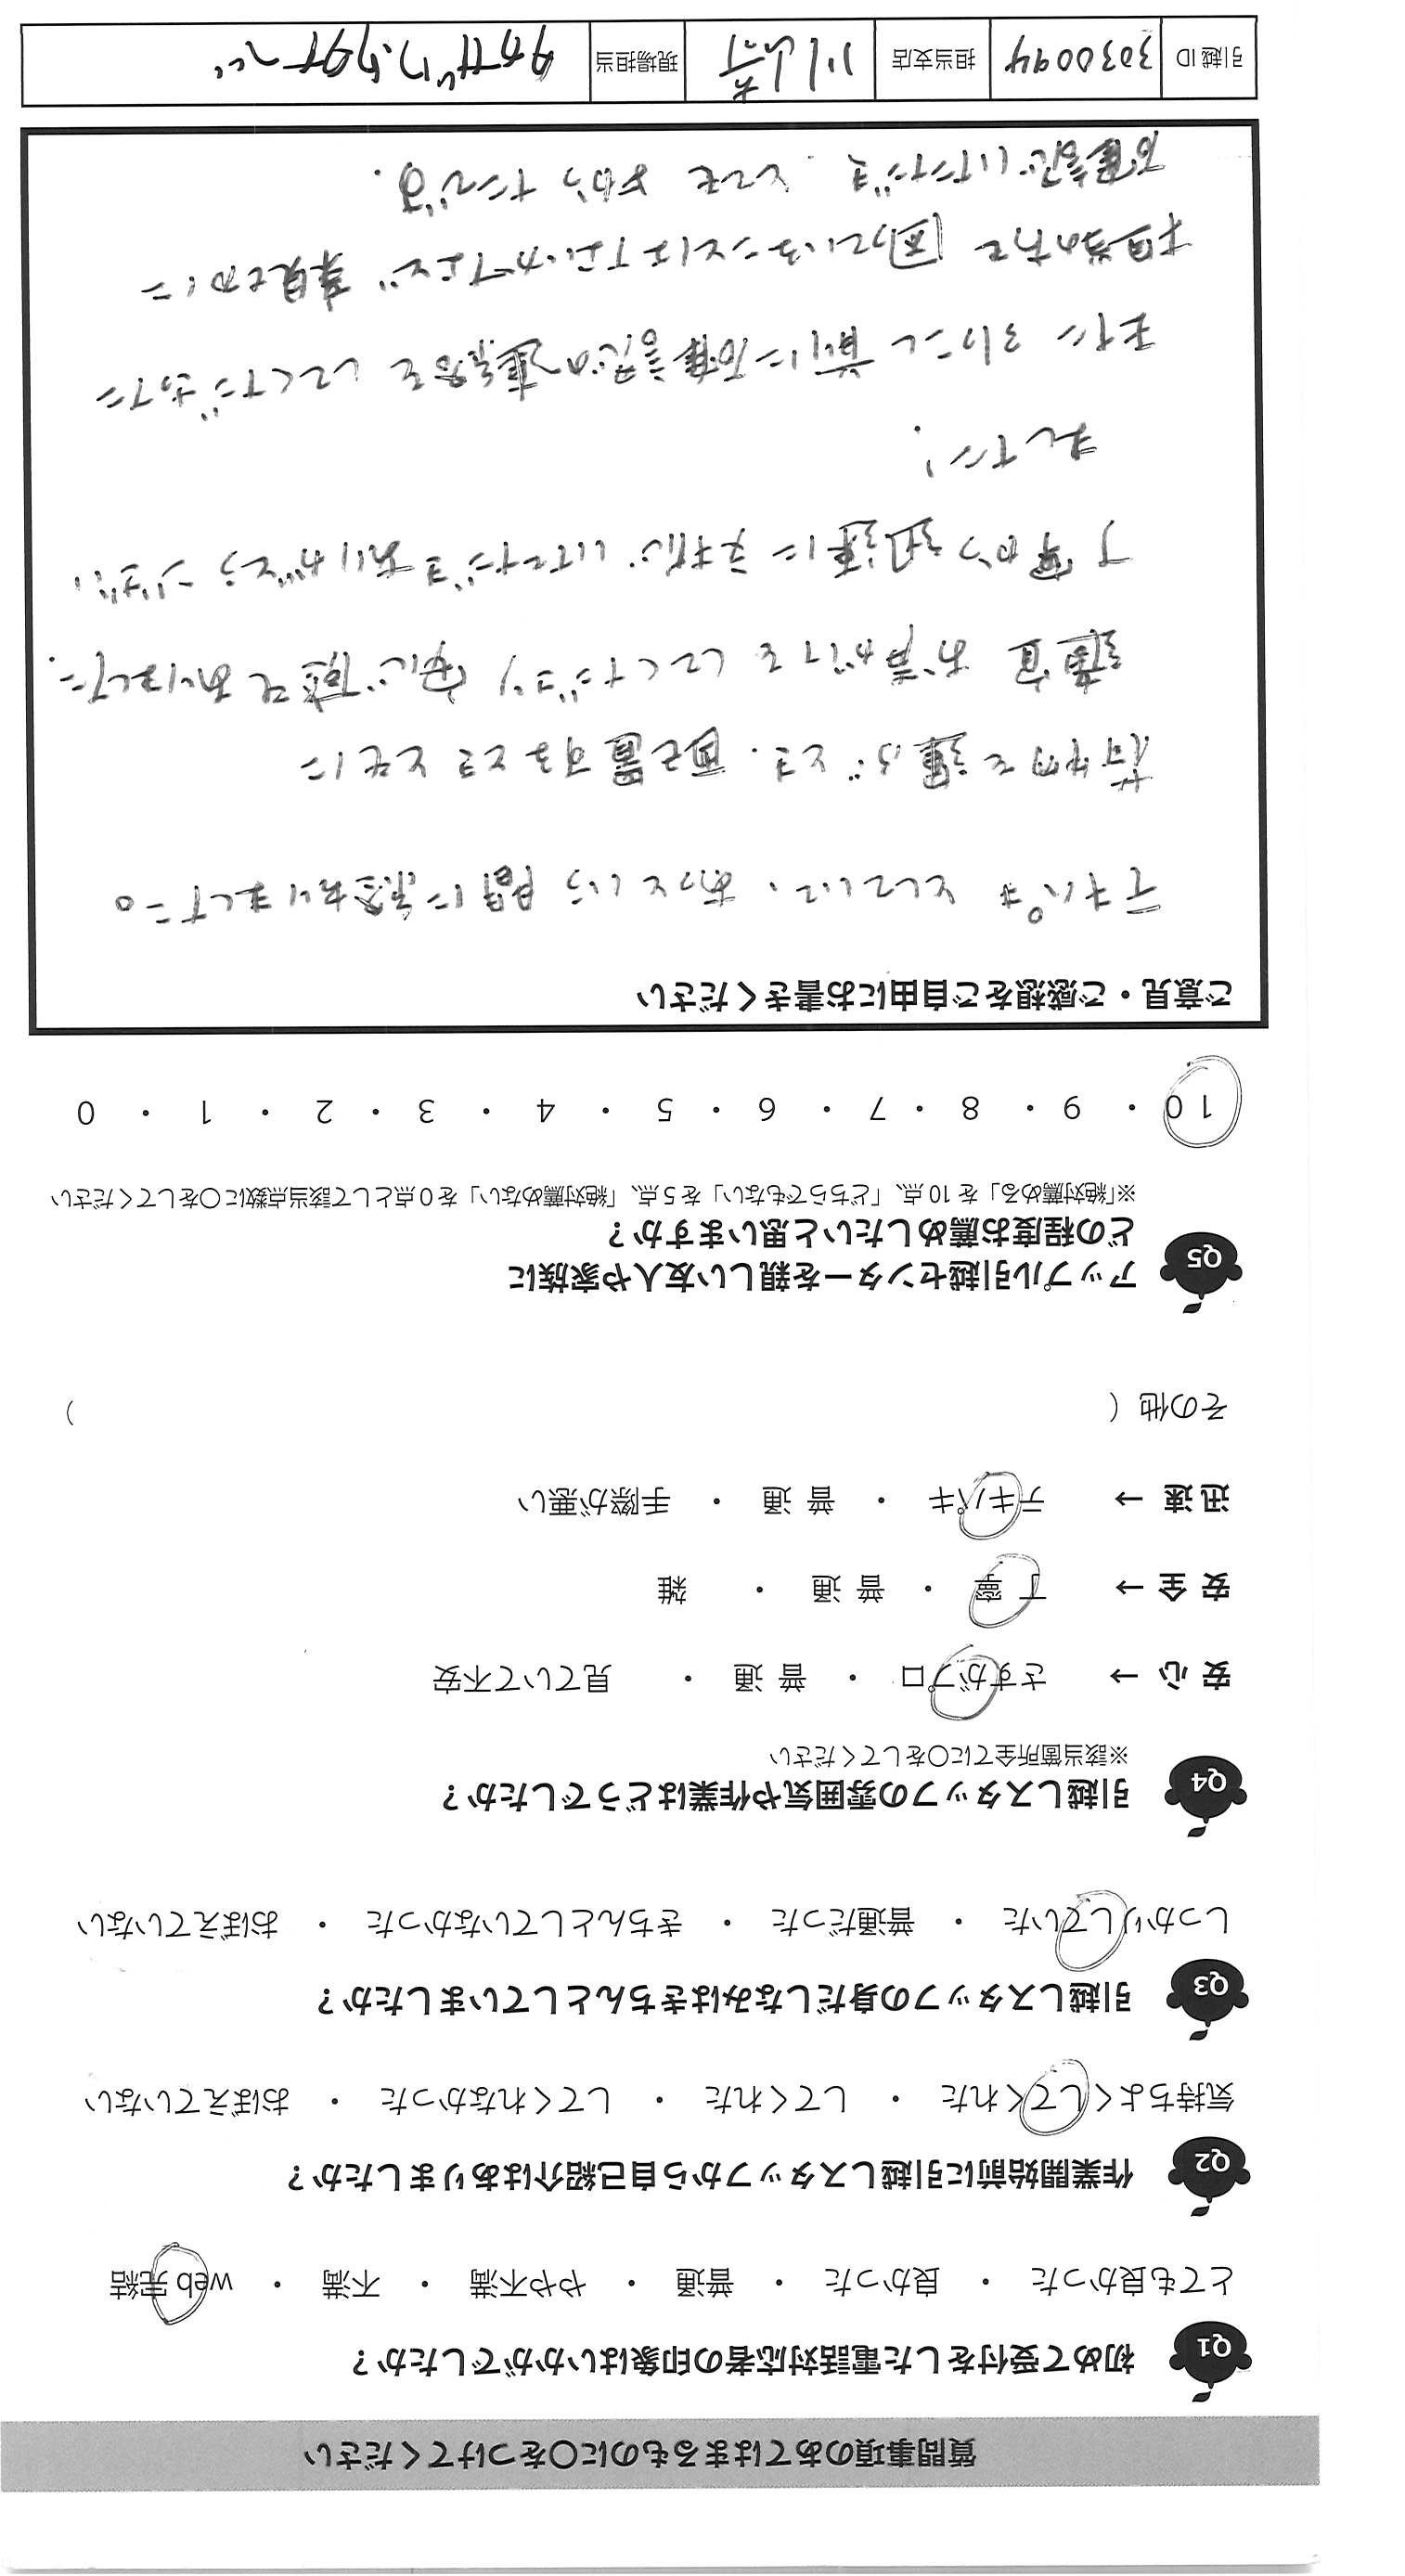 質問事項のあてはまるものに〇をつけてください
Q1 初めて受付をした電話対応者の印象はいかがでしたか？
とても良かった ・ 良かった ・ 普通 ・ やや不満 ・ 不満 ・ web 完結
Q2 作業開始前に引越しスタッフから自己紹介はありましたか？
気持ちよくしてくれた ・ してくれた ・ してくれなかった ・ おぼえていない
Q3 引越しスタッフの身だしなみはきちんとしていましたか？
しっかりしていた ・ 普通だった ・ きちんとしていなかった ・ おぼえていない
Q4 引越しスタッフの雰囲気や作業はどうでしたか？
※該当箇所全てに〇をしてください
安 心 → さすがプロ ・ 普 通 ・ 見ていて不安
安 全 → 丁 寧 ・ 普 通 ・ 雑
迅 速 → テキパキ ・ 普 通 ・ 手際が悪い
その他（ ）
Q5 アップル引越センターを親しい友人や家族に
どの程度お薦めしたいと思いますか？
※「絶対薦める」を 10 点、「どちらでもない」を 5 点、「絶対薦めない」を 0 点として該当点数に〇をしてください
10 ・ 9 ・ 8 ・ 7 ・ 6 ・ 5 ・ 4 ・ 3 ・ 2 ・ 1 ・ 0
ご意見・ご感想をご自由にお書きください
テキパキ としていて、あっという間に終わりました。
荷物を運ぶとき、配置するときとともに
適宜お声がけをしてくださり 安心感もありました。
丁寧かつ迅速に対応いただきありがとうござい
ました！
また ひっこし前に確認の連絡をしてくださった
担当の方も困っていることはないかなど 親身に
確認いただき、とても よかったです。
引越 ID 3030094 担当支店 川崎 現場担当